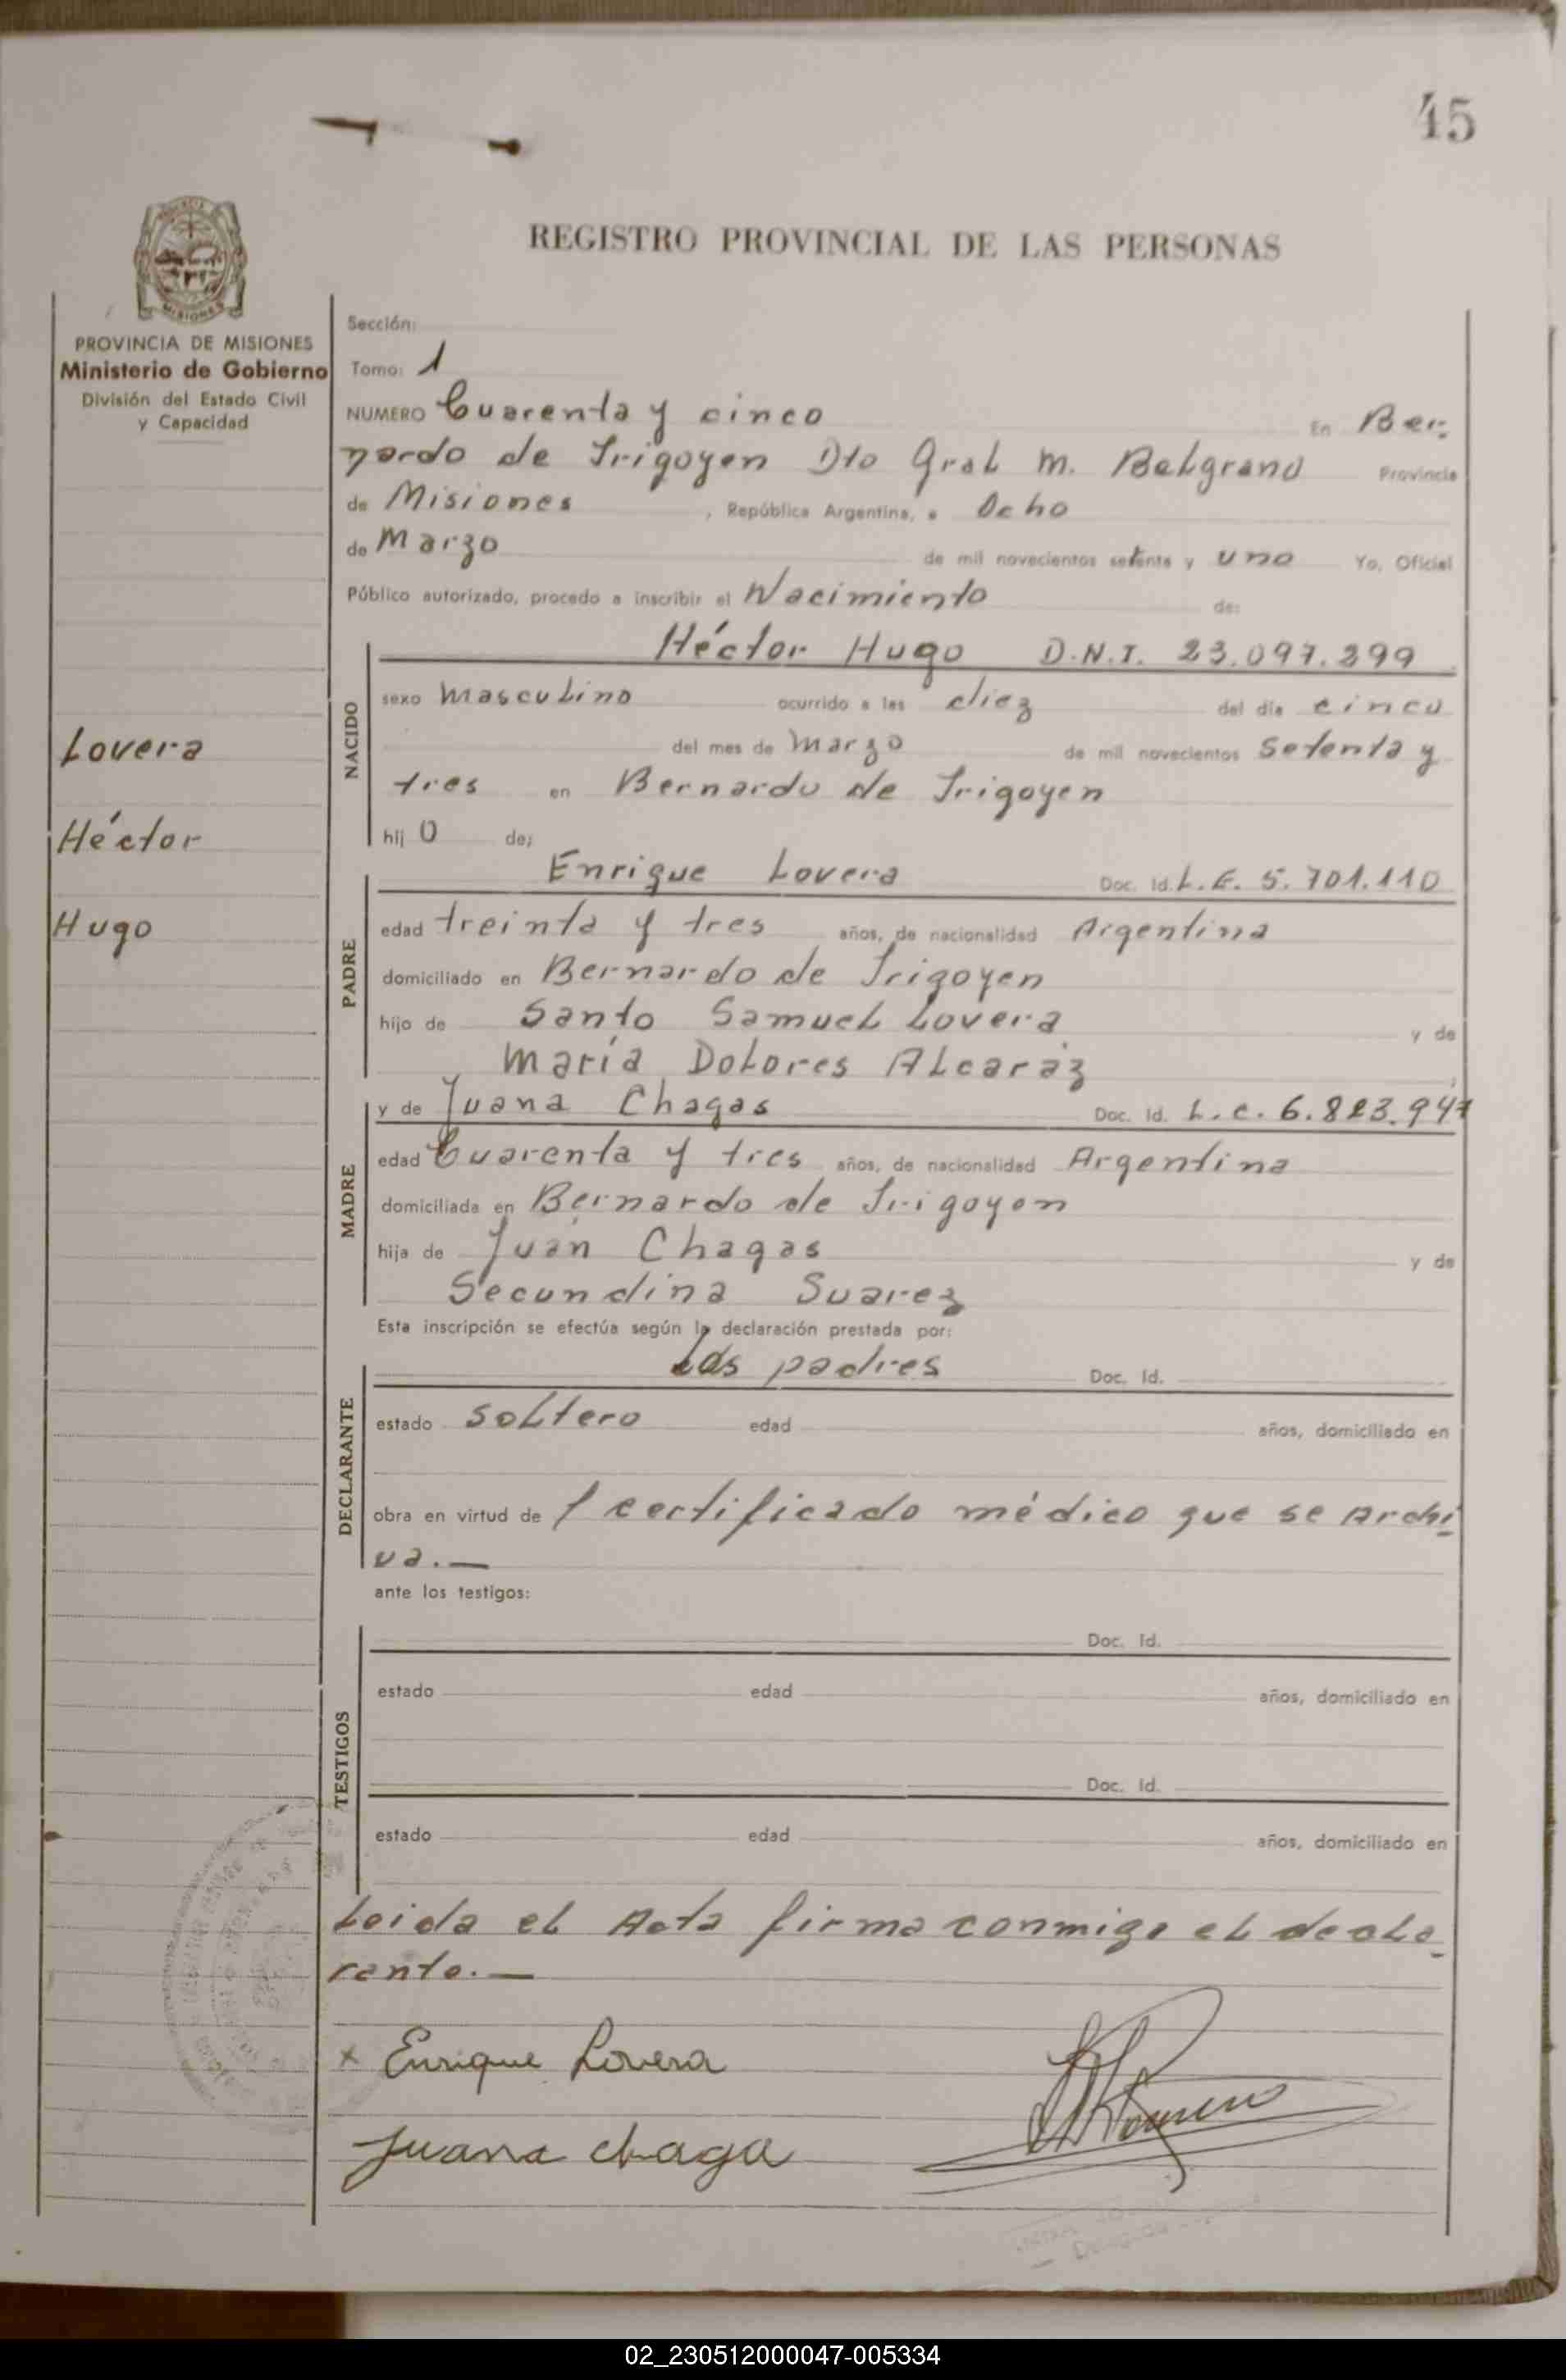 45
REGISTRO PROVINCIAL DE LAS PERSONAS
MISIONES
PROVINCIA DE MISIONES
Ministerio de Gobierno
División del Estado Civil
y Capacidad
Lovera
Héctor
Hugo
Sección:
Tomo: 1
NUMERO Cuarenta y cinco En Ber-
nardo de Irigoyen Dto Gral M. Belgrano Provincia
de Misiones, República Argentina, a Ocho
de Marzo de mil novecientos setenta y uno Yo, Oficial
Público autorizado, procedo a inscribir el Nacimiento de:
NACIDO
Héctor Hugo D.N.I. 23.097.299
sexo masculino ocurrido a las diez del día cinco
del mes de Marzo de mil novecientos Setenta y
tres en Bernardo de Irigoyen
hij o de;
PADRE
Enrique Lovera Doc. Id. L.E. 5.701.110
edad treinta y tres años, de nacionalidad Argentina
domiciliado en Bernardo de Irigoyen
hijo de Santo Samuel Lovera y de
María Dolores Alcaráz
MADRE
y de Juana Chagas Doc. Id. L.C. 6.823.947
edad Cuarenta y tres años, de nacionalidad Argentina
domiciliada en Bernardo de Irigoyen
hija de Juan Chagas y de
Secundina Suarez
Esta inscripción se efectúa según la declaración prestada por:
DECLARANTE
Los padres Doc. Id.
estado soltero edad años, domiciliado en
obra en virtud de 1 certificado médico que se archi
va.—
ante los testigos:
TESTIGOS
Doc. Id.
estado edad años, domiciliado en
Doc. Id.
estado edad años, domiciliado en
Leida el Acta firma conmigo el decla-
rante.—
x Enrique Lovera
Juana chaga
02_230512000047-005334